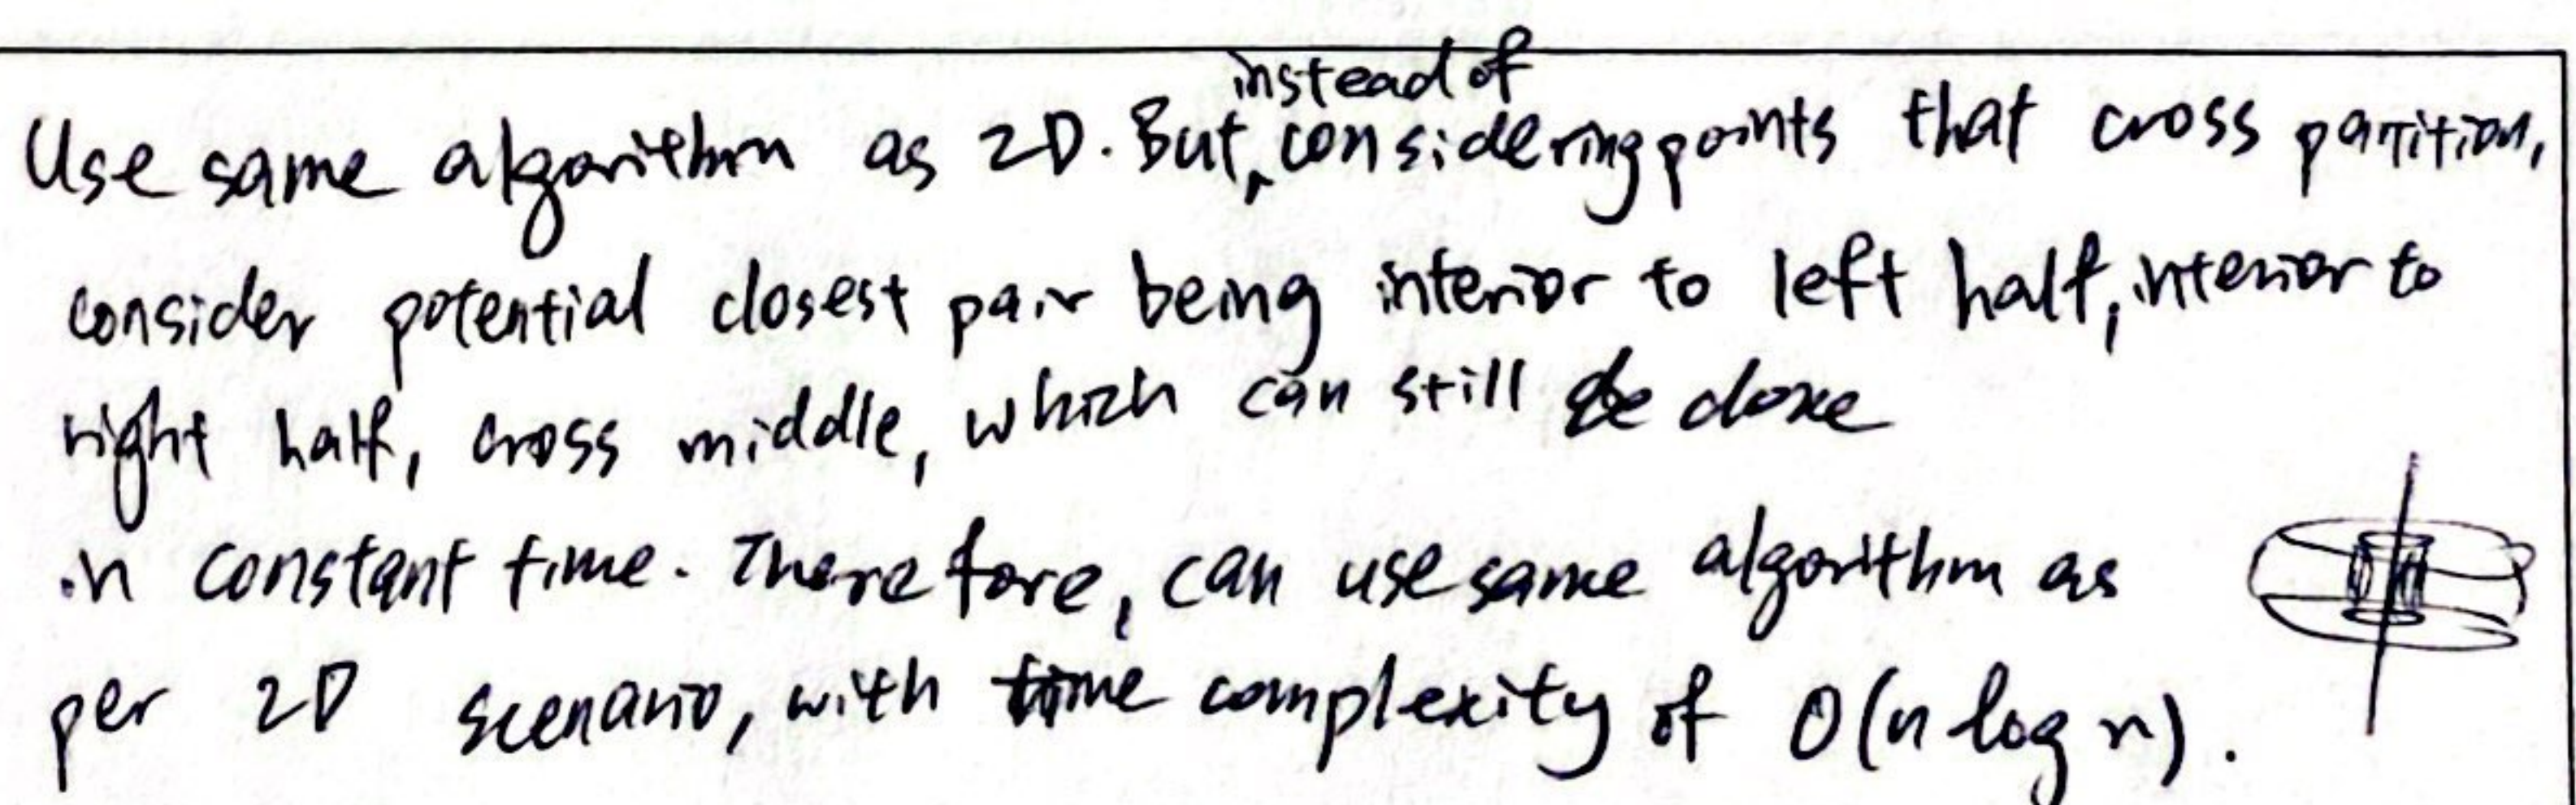 Use same algorithm as 2D. But, instead of considering points that cross partition,
consider potential closest pair being interior to left half, interior to
right half, cross middle, which can still be done
in constant time. Therefore, can use same algorithm as
per 2D scenario, with time complexity of O(n log n).